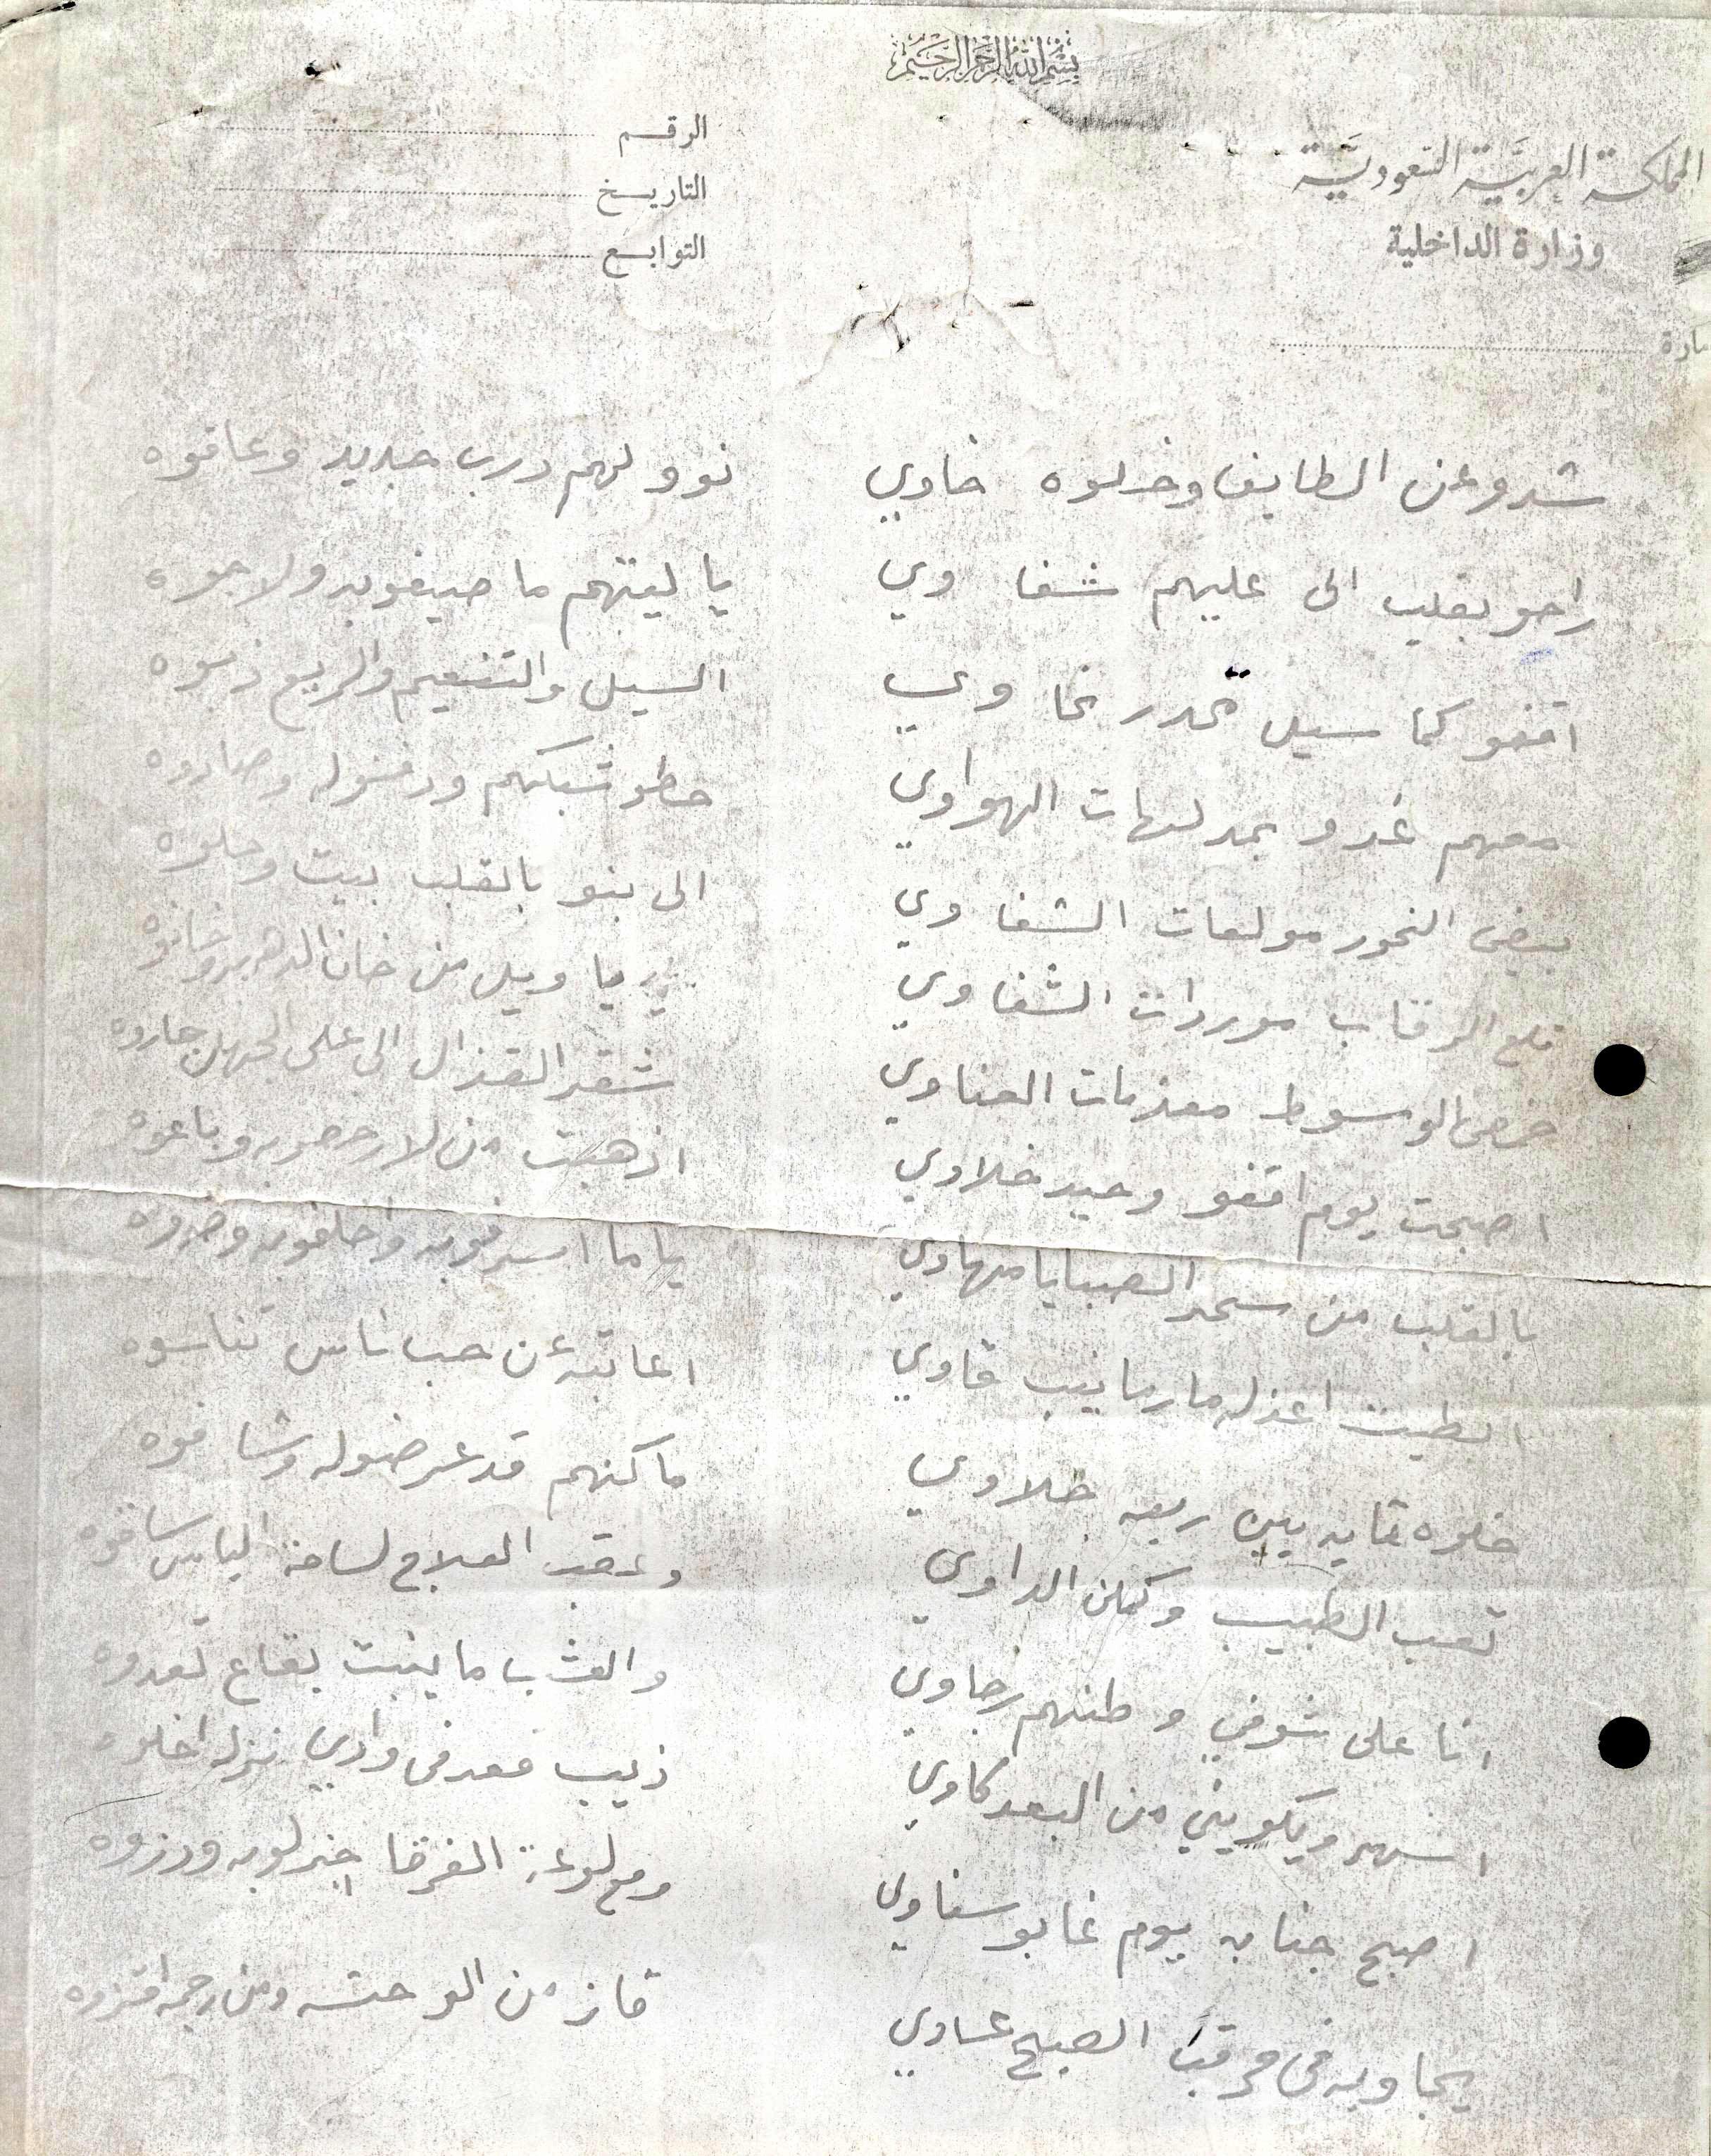 بسم الله الرحمن الرحيم
المملكة العربية السعودية
وزارة الداخلية
الرقم
التاريخ
التوابع
شدو عن الطايف وخلوه خاوي نوو لهم درب جديد وعافوه
راحو بقلب الى عليهم شفاوي يا ليتهم ما صيفوبه ولا جوه
اقفو كما سيل تحدر نحاوي السيل والتنعيم والريع ذبوه
معهم غدو بمدلهات الهواوي حطو شبكهم ودفنوله وصادوه
بيض النحور مولعات الشفاوي الى بنو بالقلب بيت وحلوه
تلع الرقاب موردات الشفاوي يا ويل من خان الدهر به وخانوه
خمص الوسوط معذبات العناوي شقر القذال الى على الجهل جاروه
اصبحت يوم اقفو وحيد خلاوي اذهبت من لارحموبه وباعوه
بالقلب من سحر الصبايا مهاوي ياما اسرفوبه واجلفوبه وضروه
ابطيت اعذله مار مانيب قاوي اعاتبه عن حب ناس تناسوه
خلوه تايه بين ربعه خلاوي ماكنهم قد عرضوله وشافوه
تعب الطبيب وكملن الداوي وعقب العلاج لساحة الياس ساقوه
انا على شوفي وطنهم رجاوي والعشب ما ينبت بقاع تعدوه
اسهر ويكويني من البعد كاوي ذيب قعد في وادي نزله اخلوه
اصبح جنابه يوم غابو سناوي ومع لوعة الفرقا وردوه
يجاوبه في مرقب الصبح عساوي قاز من الوحشه ومن